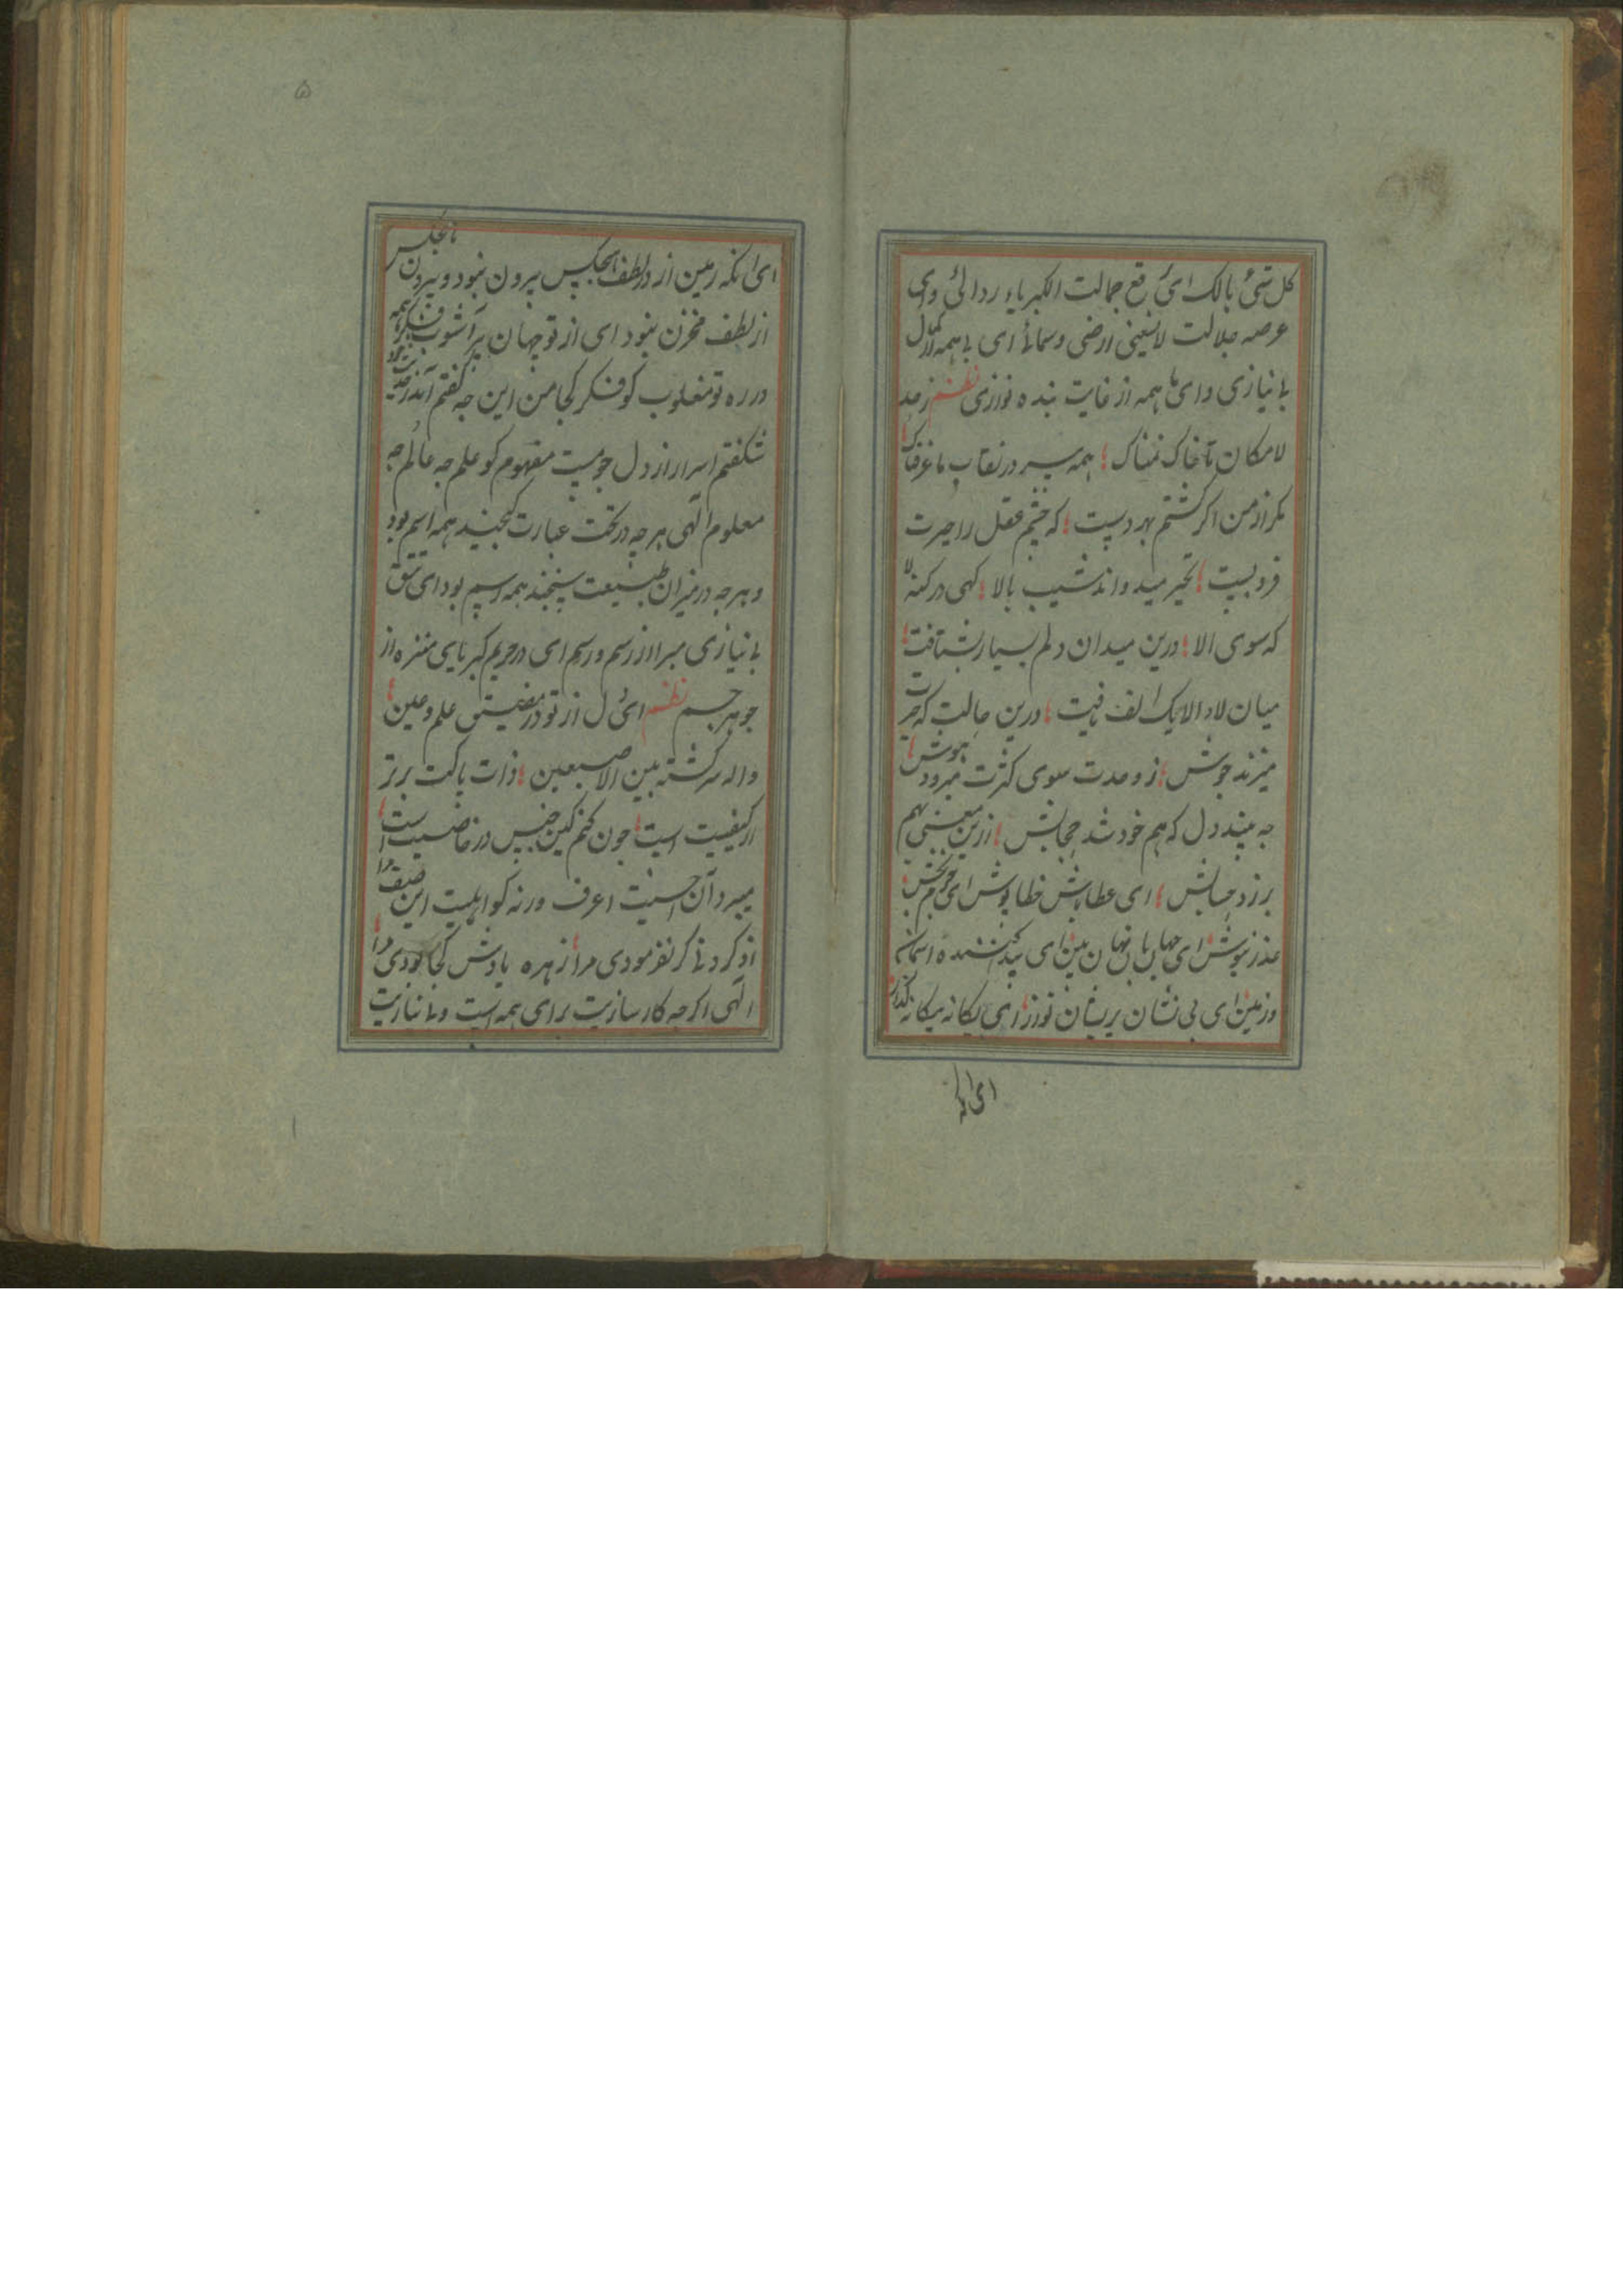 کل شیٔ هالک ای برقع جمالت الکبریاء ردائی و ای
عرصه جلالت لایسعنی ارضی و سمائی ای با همه در کمال
بی نیازی و ای با همه از غایت بنده نوازی نظم ز حد
لامکان تا خاک نمناک همه سر در نقاب ما عرفناک
مکر از من اکر کشتم بهر دست که چشم عقل را حیرت
فروبست تحیر میدواند شیب بالا کهی در کنه لا
که سوی الا درین میدان دلم بسیار بشتافت
میان لا و الا یک الف یافت درین حالت که حیرت
میزند جوش ز وحدت سوی کثرت میرود هوش
چه بیند دل که هم خود شد حجابش ازین معنی بهم
برزد حسابش ای عطا پاش خطا پوش ای جرم بخش
عذر نیوش ای جهان بان نهان بین ای آسمان
و زمین ای بی نشان پریشان نوز ای یکانه بیکانه کداز
ای انکه
۵
ای انکه زمین از در لطف هیچکس بیرون نبود و بیرون هیچکس
از لطف مخزن نبود ای از تو جهان پرآشوب فکر همه
در ره تو مغلوب کو فکر کجا من این چه کفتم
نشکفتم اسرار از دل جو نیست مفهوم کو علم چه عالم چه
معلوم الهی هر چه در تحت عبارت کنجید همه اسم بود
و هرچه در میزان طبیعت سنجند همه رسم بود ای
بی نیازی مبرا از رسم و رسم ای در حریم کبریایی منزه از
جوهر جسم نظم ای دل از تو در مضیق علم و عین
واله سرکشته بین الاصبعین ذات پاکت برتر
از کیفیت است چون کنم کین جنس در خاصیت است
میبرد آن احببت اعرف ورنه کو اهلیت این صیف مرا
اذکردنی کر نفرمودی مرا زهره یادش کجا بودی مرا
الهی اکرچه کارسازیت برای همه است و بی نیازیت